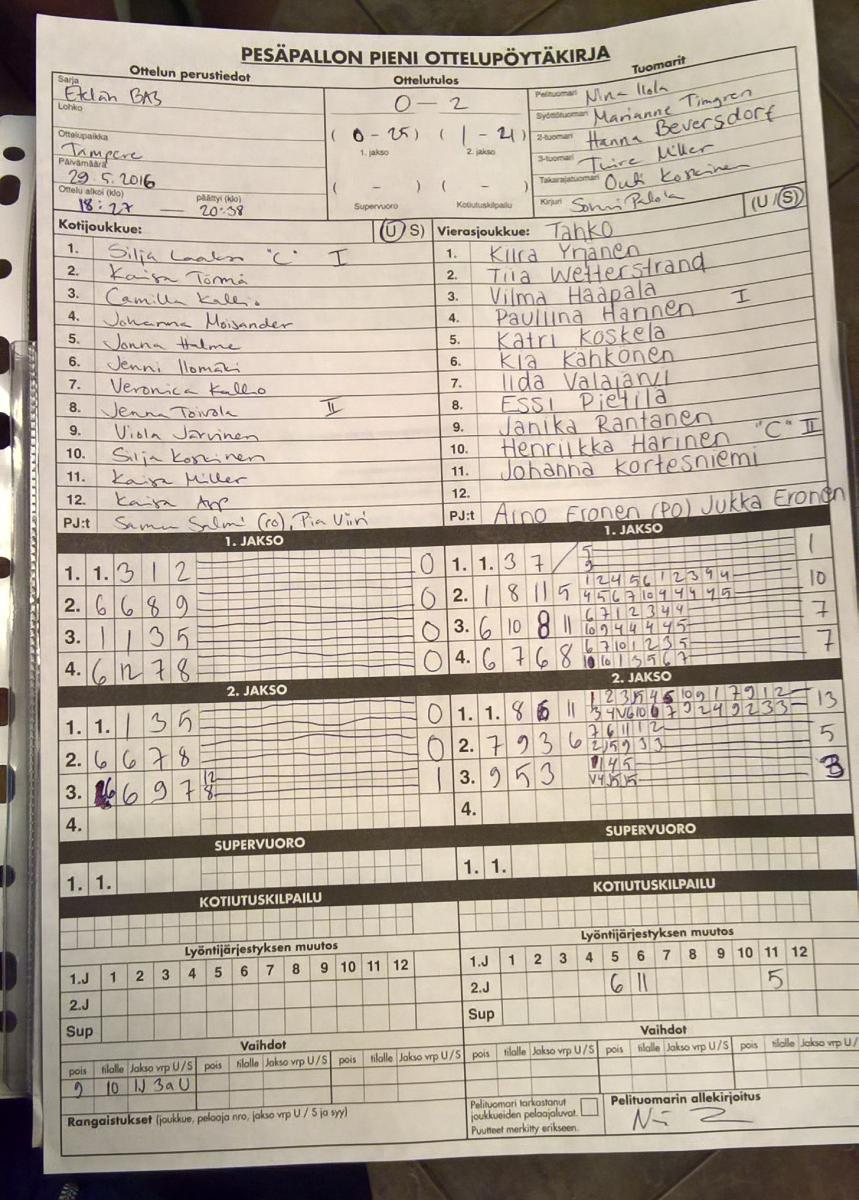 PESÄPALLON PIENI OTTELUPÖYTÄKIRJA
Ottelun perustiedot
Sarja
BA3
Lohko
Ottelupaikka
Tampere
Päivämäärä
29.5.2016
Ottelu alkoi (klo) päättyi (klo)
18:27 — 20:38
Ottelutulos
0 – 2
( 0 – 25 ) ( 1 – 21 )
1. jakso 2. jakso
( – ) ( – )
Supervuoro Kotiutuskilpailu
Tuomarit
Pelituomari Nina Ilola
Syöttötuomari Marianne Timgren
2-tuomari Hanna Beversdorf
3-tuomari Miller
Takarajatuomari Outi Koskinen
Kirjuri
(U / S)
Kotijoukkue: (U S)
1. Silja Laakso "C" I
2. Kaisa Törmä
3. Camilla Kallio
4. Johanna Moisander
5. Jonna Halme
6. Jenni Ilomäki
7. Veronica Kallio
8. Jenna Toivola II
9. Viola Järvinen
10. Silja Koskinen
11. Kaisa Miller
12. Kaisa
PJ:t Samu Salmi (PO), Pia Viiri
Vierasjoukkue: Tahko
1. Kiira Yrjänen
2. Tiia Wetterstrand
3. Vilma Haapala
4. Pauliina Harinen I
5. Katri Koskela
6. Kia Kähkönen
7. Iida Valajärvi
8. Essi Pietilä
9. Janika Rantanen
10. Henriikka Harinen "C" II
11. Johanna Kortesniemi
12.
PJ:t Arno Eronen (PO) Jukka Eronen
1. JAKSO
1. 1. 3 1 2 0
2. 6 6 8 9 0
3. 1 1 3 5 0
4. 6 12 7 8 0
1. JAKSO
1. 1. 3 7 / 5 1
9
2. 1 8 11 5 1 2 4 5 6 1 2 3 4 4 10
4 5 6 7 10 4 4 4 4 5
3. 6 10 8 11 6 7 1 2 3 4 4 7
10 9 4 4 4 4 5
4. 6 7 6 8 6 7 10 1 2 3 5 7
10 10 1 3 5 6 7
2. JAKSO
1. 1. 1 3 5 0
2. 6 6 7 8 0
3. 6 6 9 7 12 1
8
4.
2. JAKSO
1. 1. 8 6 11 13
2. 7 9 3 6 7 6 11 1 2 5
3. 9 5 3 3
4.
SUPERVUORO
1. 1.
SUPERVUORO
1. 1.
KOTIUTUSKILPAILU
KOTIUTUSKILPAILU
Lyöntijärjestyksen muutos
1.J 1 2 3 4 5 6 7 8 9 10 11 12
2.J
Sup
Lyöntijärjestyksen muutos
1.J 1 2 3 4 5 6 7 8 9 10 11 12
2.J 6 11 5
Sup
Vaihdot
pois tilalle Jakso vrp U / S pois tilalle Jakso vrp U / S pois tilalle Jakso vrp U / S
9 10 1J 3a U
Vaihdot
pois tilalle Jakso vrp U / S pois tilalle Jakso vrp U / S pois tilalle Jakso vrp U /
Rangaistukset (joukkue, pelaaja nro, jakso vrp U / S ja syy)
Pelituomari tarkastanut
joukkueiden pelaajaluvat.
Puutteet merkitty erikseen.
Pelituomarin allekirjoitus